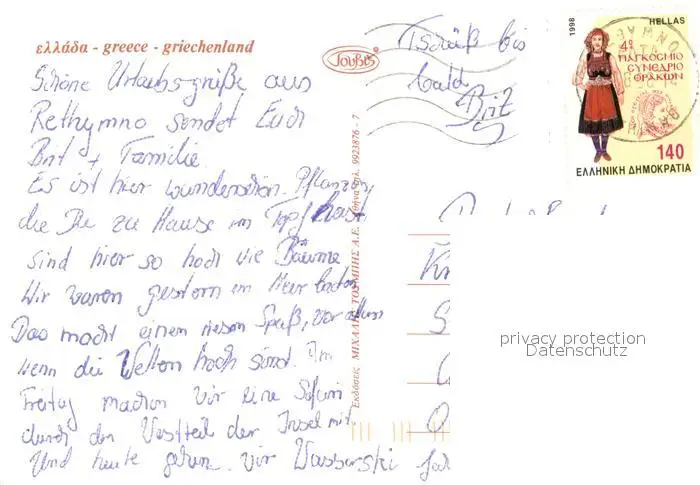 ελλάδα - greece - griechenland
Schöne Urlaubsgrüße aus
Rethymno sendet Euch
Brit + Familie.
Es ist hier wunderschön. Pflanzen,
die Du zu Hause im Topf hast
sind hier so hoch wie Bäume
Wir waren gestern im Meer baden
Das macht einem riesen Spaß, vor allem
wenn die Wellen hoch sind. Am
Freitag machen wir eine Safari
durch den Westteil der Insel mit.
Und heute gehen wir Wasserski
Tschüß bis
bald
Brit
Ιουβις
Εκδόσεις ΜΙΧΑΛΗΣ ΤΟΥΜΠΗΣ Α.Ε. 9923876 - 7
1998
HELLAS
4º
ΠΑΓΚΟΣΜΙΟ
ΣΥΝΕΔΡΙΟ
ΘΡΑΚΩΝ
140
ΕΛΛΗΝΙΚΗ ΔΗΜΟΚΡΑΤΙΑ
privacy protection
Datenschutz